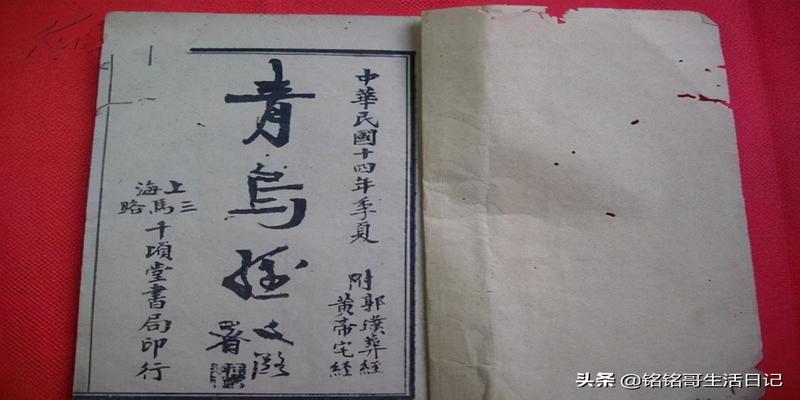 中華民國十四年季夏
附
郭璞葬經
黃帝宅經
青烏經
署
上海
三馬路
千頃堂書局印行
头条 @铭铭哥生活日记